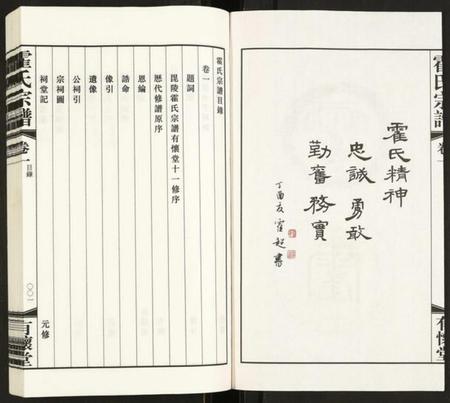 霍氏宗譜
卷一
霍氏精神
忠誠 勇敢
勤奮 務實
丁酉友霍超書
有懷堂
霍氏宗譜目錄
卷一
題詞
毘陵霍氏宗譜有懷堂十一修序
歷代修譜原序
恩綸
誥命
像引
遺像
公祠引
宗祠圖
祠堂記
霍氏宗譜
卷一
目錄
〇〇一
元修
有懷堂